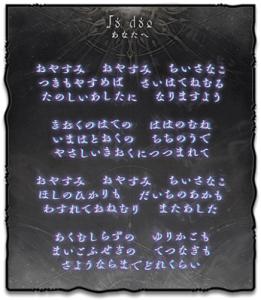 あなたへ
おやすみ　おやすみ　ちいさなこ
つきもやすめば　さいはてねむる
たのしいあしたに　なりますよう
きおくのはての　ははのむね
いまはとおくの　ちちのうで
やさしいきおくにつつまれて
おやすみ　おやすみ　ちいさなこ
ほしのひかりも　だいちのあかも
わすれておねむり　またあした
あくむしらずの　ゆりかごも
まいごふせぎの　てつなぎも
さようならまでどれくらい